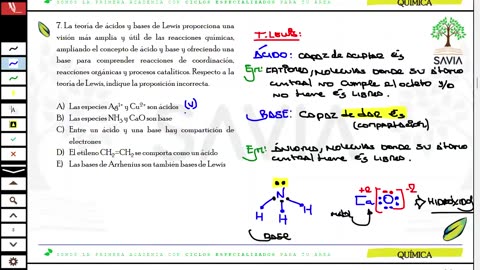 QUÍMICA
7. La teoría de ácidos y bases de Lewis proporciona una
visión más amplia y útil de las reacciones químicas,
ampliando el concepto de ácido y base y ofreciendo una
base para comprender reacciones de coordinación,
reacciones orgánicas y procesos catalíticos. Respecto a la
teoría de Lewis, indique la proposición incorrecta.
A) Las especies Ag¹⁺ y Cu²⁺ son ácidos (V)
B) Las especies NH₃ y CaO son base
C) Entre un ácido y una base hay compartición de
electrones
D) El etileno CH₂=CH₂ se comporta como un ácido
E) Las bases de Arrhenius son también bases de Lewis
T. Lewis:
SAVIA
ÁCIDO: capaz de aceptar e⁻s
Ej: CATIONES, MOLÉCULAS DONDE SU ÁTOMO
CENTRAL NO CUMPLE EL OCTETO Y/O
NO TIENE e⁻s LIBRES.
BASE: CAPAZ de dar e⁻s
(compartición)
Ej: ANIONES, MOLÉCULAS DONDE SU ÁTOMO
CENTRAL TIENE e⁻s LIBRES.
N
H H H
BASE
+2 -2
Ca O
METAL
HIDRÓXIDO
QUÍMICA